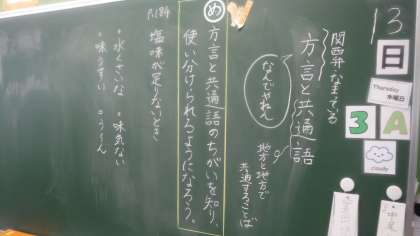 13
日
Thursday
木曜日
3 A
cloudy
関西弁 なまている
方言と共通語
なんでやねん
地方と地方で
共通することば
め 方言と共通語のちがいを知り、
使い分けられるようになろう。
P.184
塩味が足りないとき
・水くさいな ・味気ない
・味うすい ・う〜ん